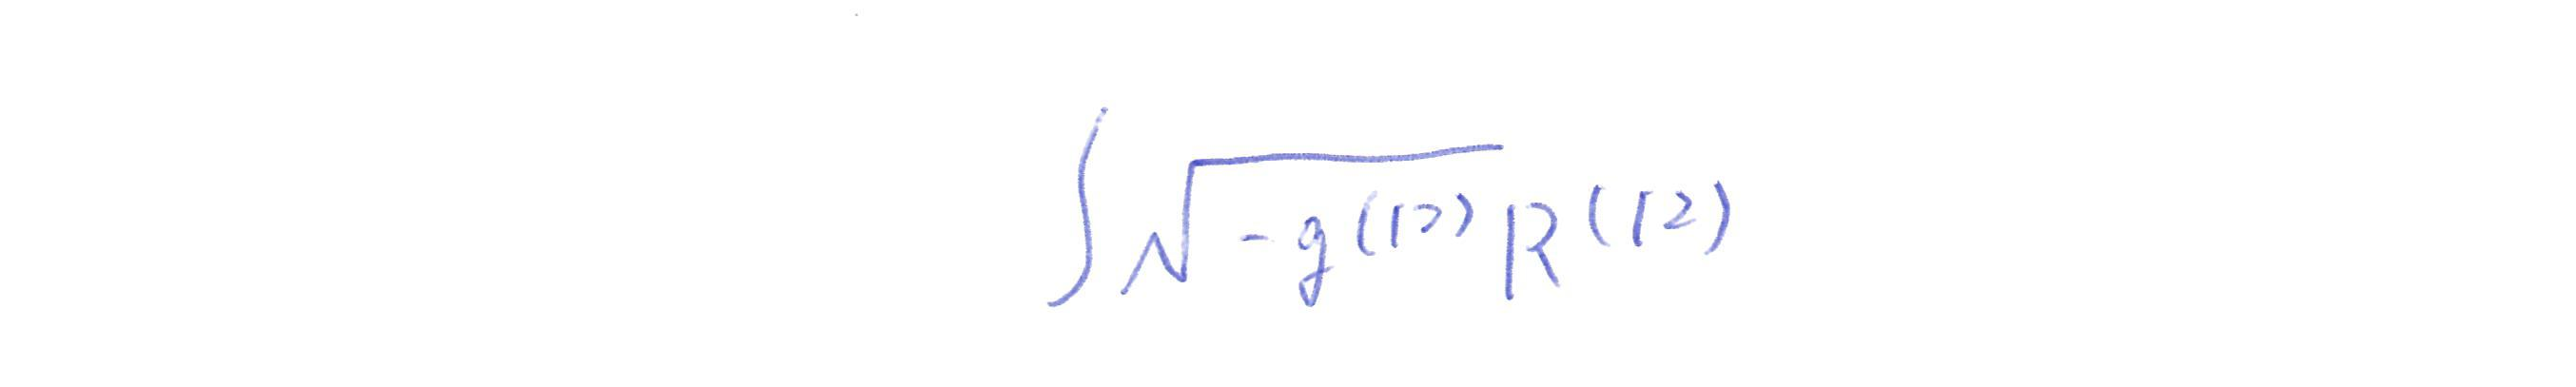 ∫√-g^(12) R^(12)